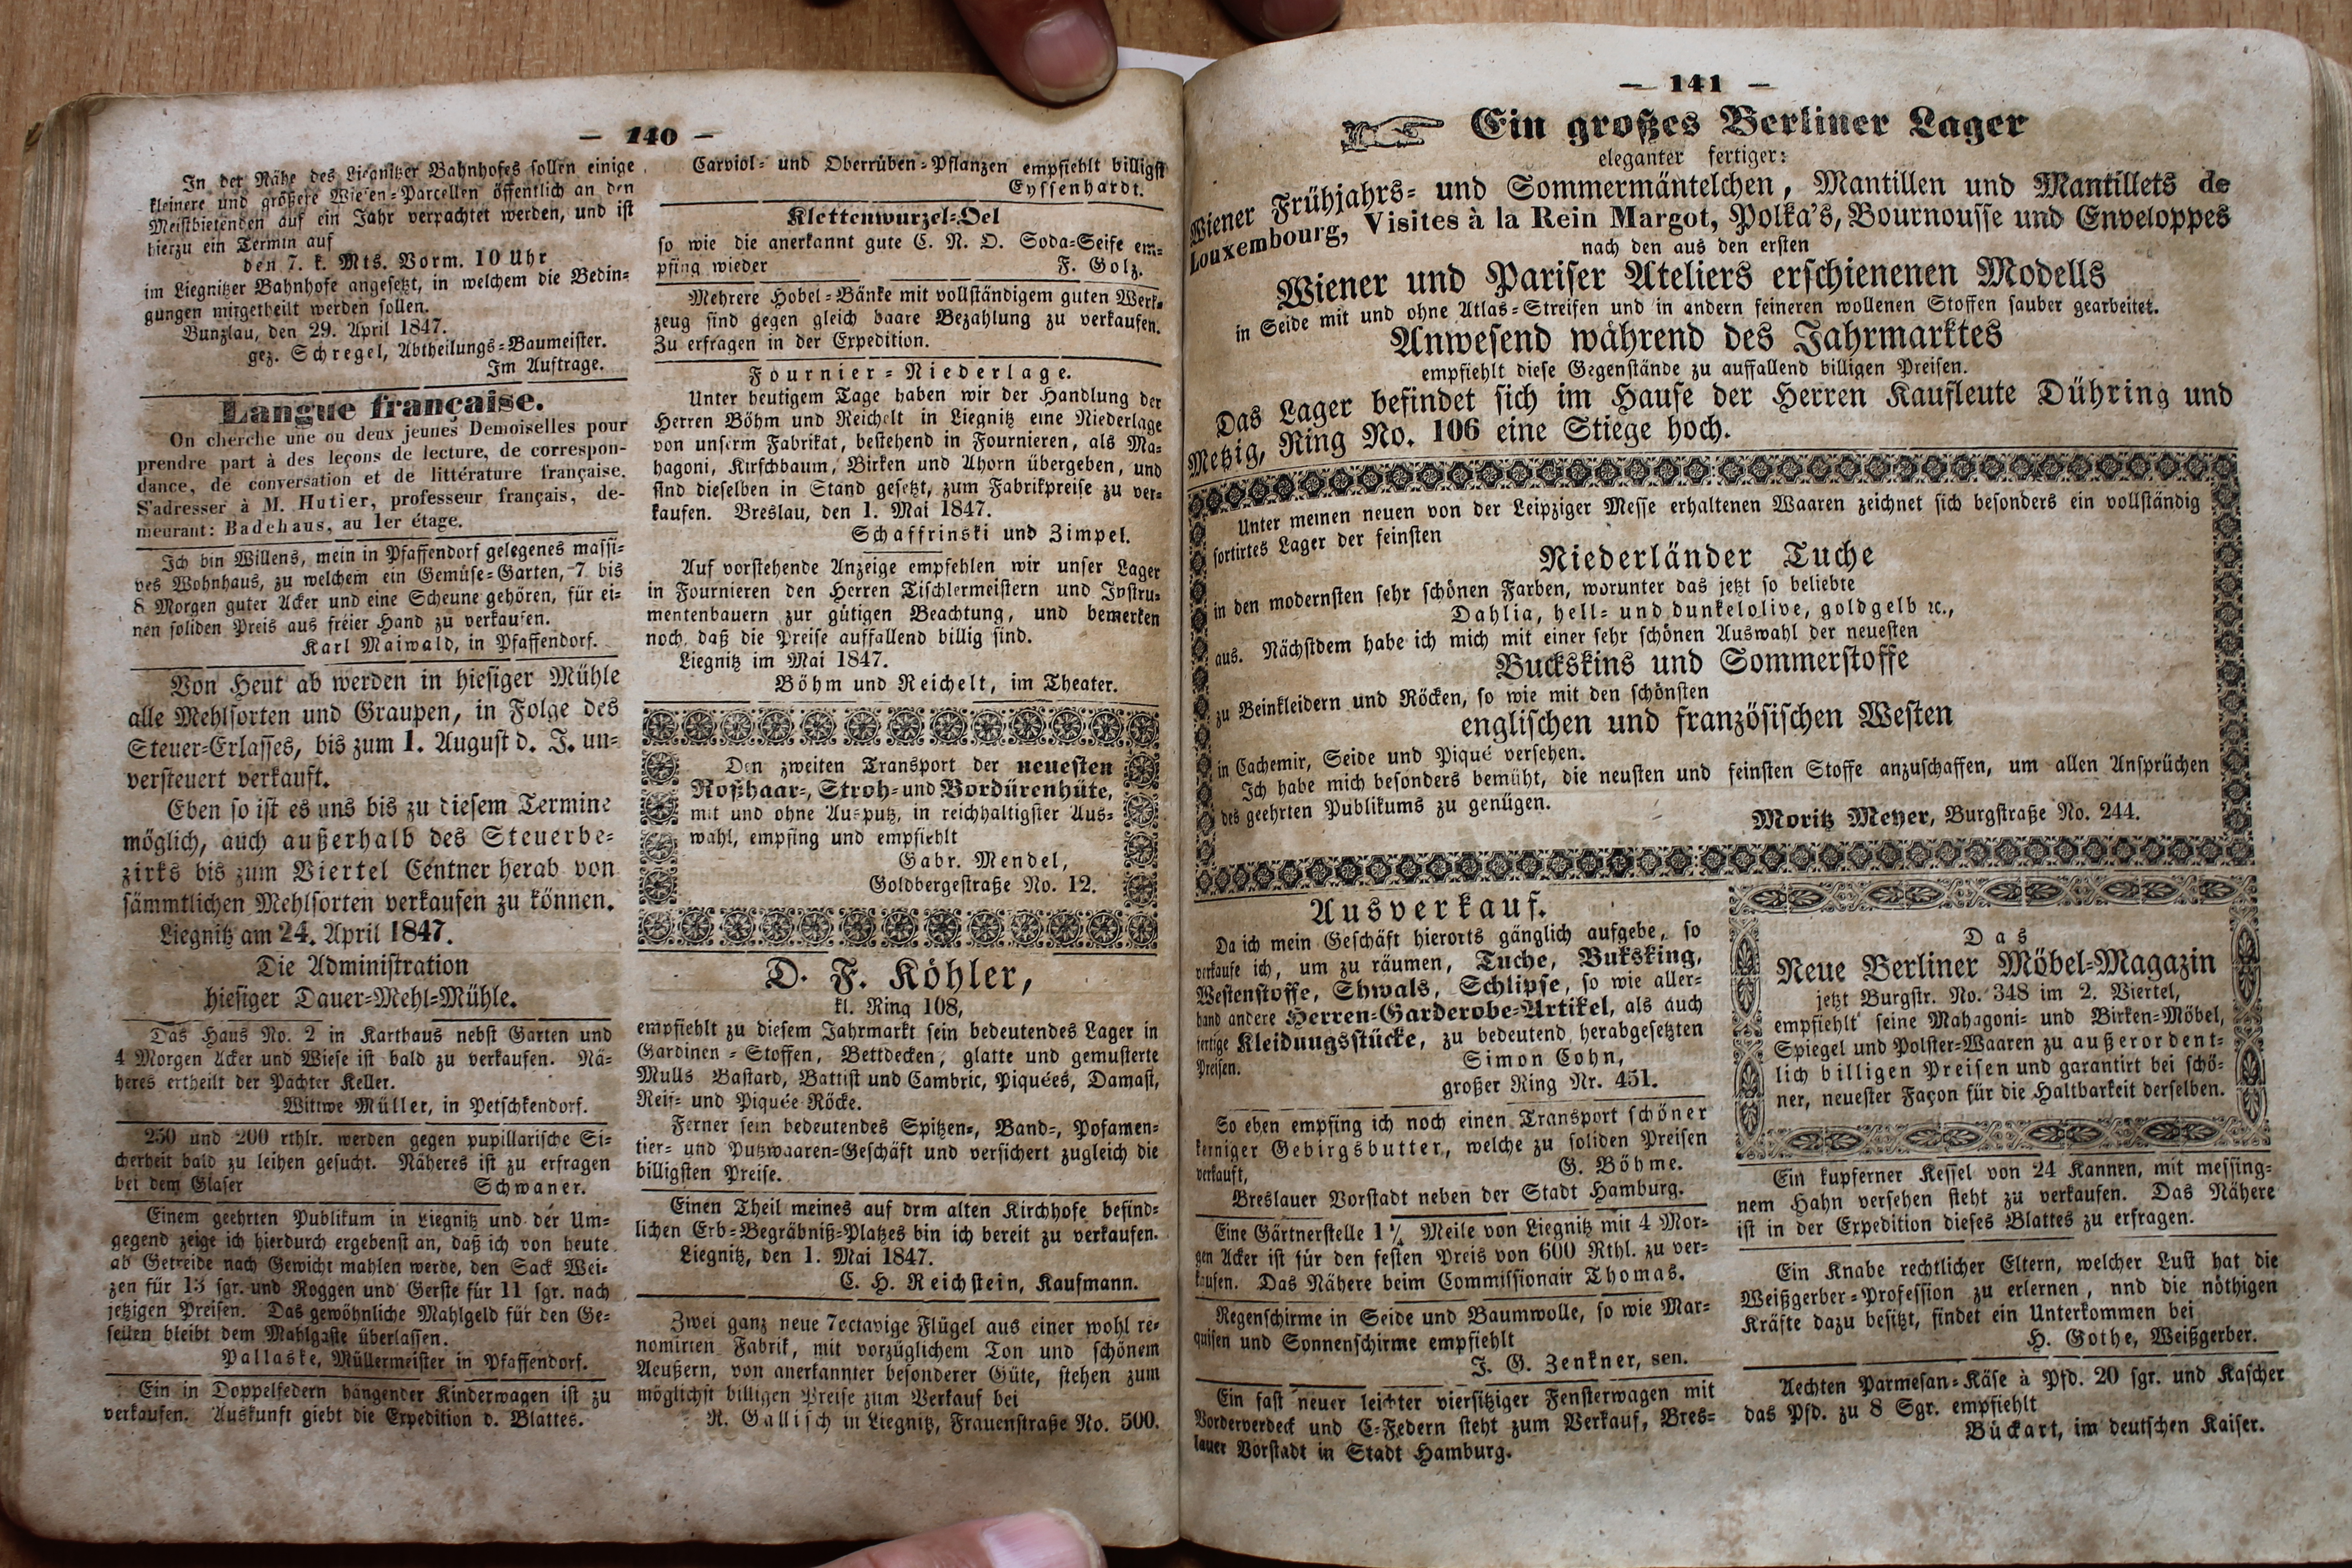 — 140 —
In der Nähe des Liegnitzer Bahnhofes sollen einige
kleinere und größere Wiesen-Parcellen öffentlich an den
Meistbietenden auf ein Jahr verpachtet werden, und ist
hierzu ein Termin auf
den 7. k. Mts. Vorm. 10 Uhr
im Liegnitzer Bahnhofe angesetzt, in welchem die Bedin-
gungen mitgetheilt werden sollen.
Bunzlau, den 29. April 1847.
gez. Schregel, Abtheilungs-Baumeister.
Im Auftrage.
Langue française.
On cherche une ou deux jeunes Demoiselles pour
prendre part à des leçons de lecture, de correspon-
dance, de conversation et de littérature française.
S'adresser à M. Hutier, professeur français, de-
meurant: Badehaus, au 1er étage.
Ich bin Willens, mein in Pfaffendorf gelegenes massi-
ves Wohnhaus, zu welchem ein Gemüse-Garten, 7 bis
8 Morgen guter Acker und eine Scheune gehören, für ei-
nen soliden Preis aus freier Hand zu verkaufen.
Karl Maiwald, in Pfaffendorf.
Von Heut ab werden in hiesiger Mühle
alle Mehlsorten und Graupen, in Folge des
Steuer-Erlasses, bis zum 1. August d. J. un-
versteuert verkauft.
Eben so ist es uns bis zu diesem Termine
möglich, auch außerhalb des Steuerbe-
zirks bis zum Viertel Centner herab von
sämmtlichen Mehlsorten verkaufen zu können.
Liegnitz am 24. April 1847.
Die Administration
hiesiger Dauer-Mehl-Mühle.
Das Haus No. 2 in Karthaus nebst Garten und
4 Morgen Acker und Wiese ist bald zu verkaufen. Nä-
heres ertheilt der Pächter Keller.
Wittwe Müller, in Petschkendorf.
250 und 200 rthlr. werden gegen pupillarische Si-
cherheit bald zu leihen gesucht. Näheres ist zu erfragen
bei dem Glaser Schwaner.
Einem geehrten Publikum in Liegnitz und der Um-
gegend zeige ich hierdurch ergebenst an, daß ich von heute
ab Getreide nach Gewicht mahlen werde, den Sack Wei-
zen für 13 sgr. und Roggen und Gerste für 11 sgr. nach
jetzigen Preisen. Das gewöhnliche Mahlgeld für den Ge-
sellen bleibt dem Mahlgaste überlassen.
Pallaske, Müllermeister in Pfaffendorf.
Ein in Doppelfedern hängender Kinderwagen ist zu
verkaufen. Auskunft giebt die Expedition d. Blattes.
Carviol- und Oberrüben-Pflanzen empfiehlt billigst
Eyssenhardt.
Klettenwurzel-Oel
so wie die anerkannt gute C. N. O. Soda-Seife em-
pfing wieder F. Golz.
Mehrere Hobel-Bänke mit vollständigem guten Werk-
zeug sind gegen gleich baare Bezahlung zu verkaufen.
Zu erfragen in der Expedition.
Fournier-Niederlage.
Unter heutigem Tage haben wir der Handlung der
Herren Böhm und Reichelt in Liegnitz eine Niederlage
von unserm Fabrikat, bestehend in Fournieren, als Ma-
hagoni, Kirschbaum, Birken und Ahorn übergeben, und
sind dieselben in Stand gesetzt, zum Fabrikpreise zu ver-
kaufen. Breslau, den 1. Mai 1847.
Schaffrinski und Zimpel.
Auf vorstehende Anzeige empfehlen wir unser Lager
in Fournieren den Herren Tischlermeistern und Instru-
mentenbauern zur gütigen Beachtung, und bemerken
noch, daß die Preise auffallend billig sind.
Liegnitz im Mai 1847.
Böhm und Reichelt, im Theater.
Den zweiten Transport der neuesten
Roßhaar-, Stroh- und Bordürenhüte,
mit und ohne Ausputz, in reichhaltigster Aus-
wahl, empfing und empfiehlt
Gabr. Mendel,
Goldbergestraße No. 12.
D. F. Köhler,
kl. Ring 108,
empfiehlt zu diesem Jahrmarkt sein bedeutendes Lager in
Gardinen-Stoffen, Bettdecken, glatte und gemusterte
Mulls Bastard, Battist und Cambric, Piquées, Damast,
Reif- und Piquée Röcke.
Ferner sein bedeutendes Spitzen-, Band-, Posamen-
tier- und Putzwaaren-Geschäft und versichert zugleich die
billigsten Preise.
Einen Theil meines auf drm alten Kirchhofe befind-
lichen Erb-Begräbniß-Platzes bin ich bereit zu verkaufen.
Liegnitz, den 1. Mai 1847.
C. H. Reichstein, Kaufmann.
Zwei ganz neue 7octavige Flügel aus einer wohl re-
nomirten Fabrik, mit vorzüglichem Ton und schönem
Aeußern, von anerkannter besonderer Güte, stehen zum
möglichst billigen Preise zum Verkauf bei
R. Gallisch in Liegnitz, Frauenstraße No. 500.
— 141 —
Ein großes Berliner Lager
eleganter fertiger:
Wiener Frühjahrs- und Sommermäntelchen, Mantillen und Mantillets de
Louxembourg, Visites à la Rein Margot, Polka's, Bournousse und Enveloppes
nach den aus den ersten
Wiener und Pariser Ateliers erschienenen Modells
in Seide mit und ohne Atlas-Streifen und in andern feineren wollenen Stoffen sauber gearbeitet.
Anwesend während des Jahrmarktes
empfiehlt diese Gegenstände zu auffallend billigen Preisen.
Das Lager befindet sich im Hause der Herren Kaufleute Dühring und
Metzig, Ring No. 106 eine Stiege hoch.
Unter meinen neuen von der Leipziger Messe erhaltenen Waaren zeichnet sich besonders ein vollständig
sortirtes Lager der feinsten
Niederländer Tuche
in den modernsten sehr schönen Farben, worunter das jetzt so beliebte
Dahlia, hell- und dunkelolive, goldgelb ꝛc.,
aus. Nächstdem habe ich mich mit einer sehr schönen Auswahl der neuesten
Buckskins und Sommerstoffe
zu Beinkleidern und Röcken, so wie mit den schönsten
englischen und französischen Westen
in Cachemir, Seide und Piqué versehen.
Ich habe mich besonders bemüht, die neusten und feinsten Stoffe anzuschaffen, um allen Ansprüchen
des geehrten Publikums zu genügen.
Moritz Meyer, Burgstraße No. 244.
Ausverkauf.
Da ich mein Geschäft hierorts gänglich aufgebe, so
verkaufe ich, um zu räumen, Tuche, Buksking,
Westenstoffe, Shwals, Schlipse, so wie aller-
hand andere Herren-Garderobe-Artikel, als auch
fertige Kleidungsstücke, zu bedeutend herabgesetzten
Preisen. Simon Cohn,
großer Ring Nr. 451.
So eben empfing ich noch einen Transport schöner
kerniger Gebirgsbutter, welche zu soliden Preisen
verkauft, G. Böhme.
Breslauer Vorstadt neben der Stadt Hamburg.
Eine Gärtnerstelle 1¼ Meile von Liegnitz mit 4 Mor-
gen Acker ist für den festen Preis von 600 Rthl. zu ver-
kaufen. Das Nähere beim Commissionair Thomas.
Regenschirme in Seide und Baumwolle, so wie Mar-
quisen und Sonnenschirme empfiehlt
J. G. Zenkner, sen.
Ein fast neuer leichter viersitziger Fensterwagen mit
Vorderverdeck und C-Federn steht zum Verkauf, Bres-
lauer Vorstadt in Stadt Hamburg.
Das
Neue Berliner Möbel-Magazin
jetzt Burgstr. No. 348 im 2. Viertel,
empfiehlt seine Mahagoni- und Birken-Möbel,
Spiegel und Polster-Waaren zu außerordent-
lich billigen Preisen und garantirt bei schö-
ner, neuester Façon für die Haltbarkeit derselben.
Ein kupferner Kessel von 24 Kannen, mit messing-
nem Hahn versehen steht zu verkaufen. Das Nähere
ist in der Expedition dieses Blattes zu erfragen.
Ein Knabe rechtlicher Eltern, welcher Lust hat die
Weißgerber-Profession zu erlernen, nnd die nöthigen
Kräfte dazu besitzt, findet ein Unterkommen bei
H. Gothe, Weißgerber.
Aechten Parmesan-Käse à Pfd. 20 sgr. und Kascher
das Pfd. zu 8 Sgr. empfiehlt
Bückart, im deutschen Kaiser.